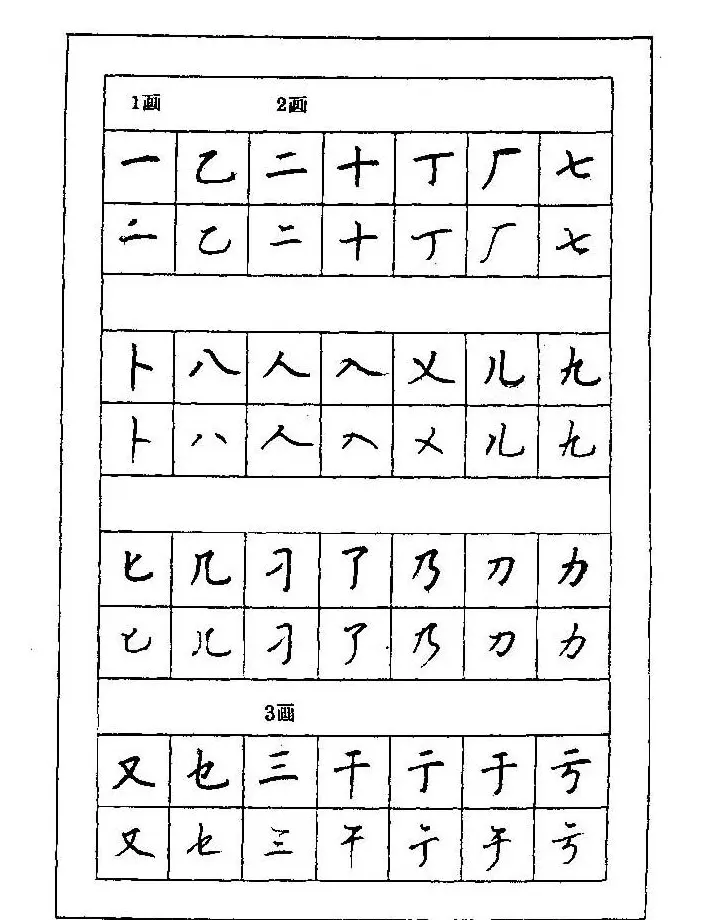 1画 2画
一 乙 二 十 丁 厂 七
一 乙 二 十 丁 厂 七
卜 八 人 入 乂 儿 九
卜 八 人 入 乂 儿 九
匕 几 刁 了 乃 刀 力
匕 几 刁 了 乃 刀 力
3画
又 乜 三 干 亍 于 亏
又 乜 三 干 亍 于 亏